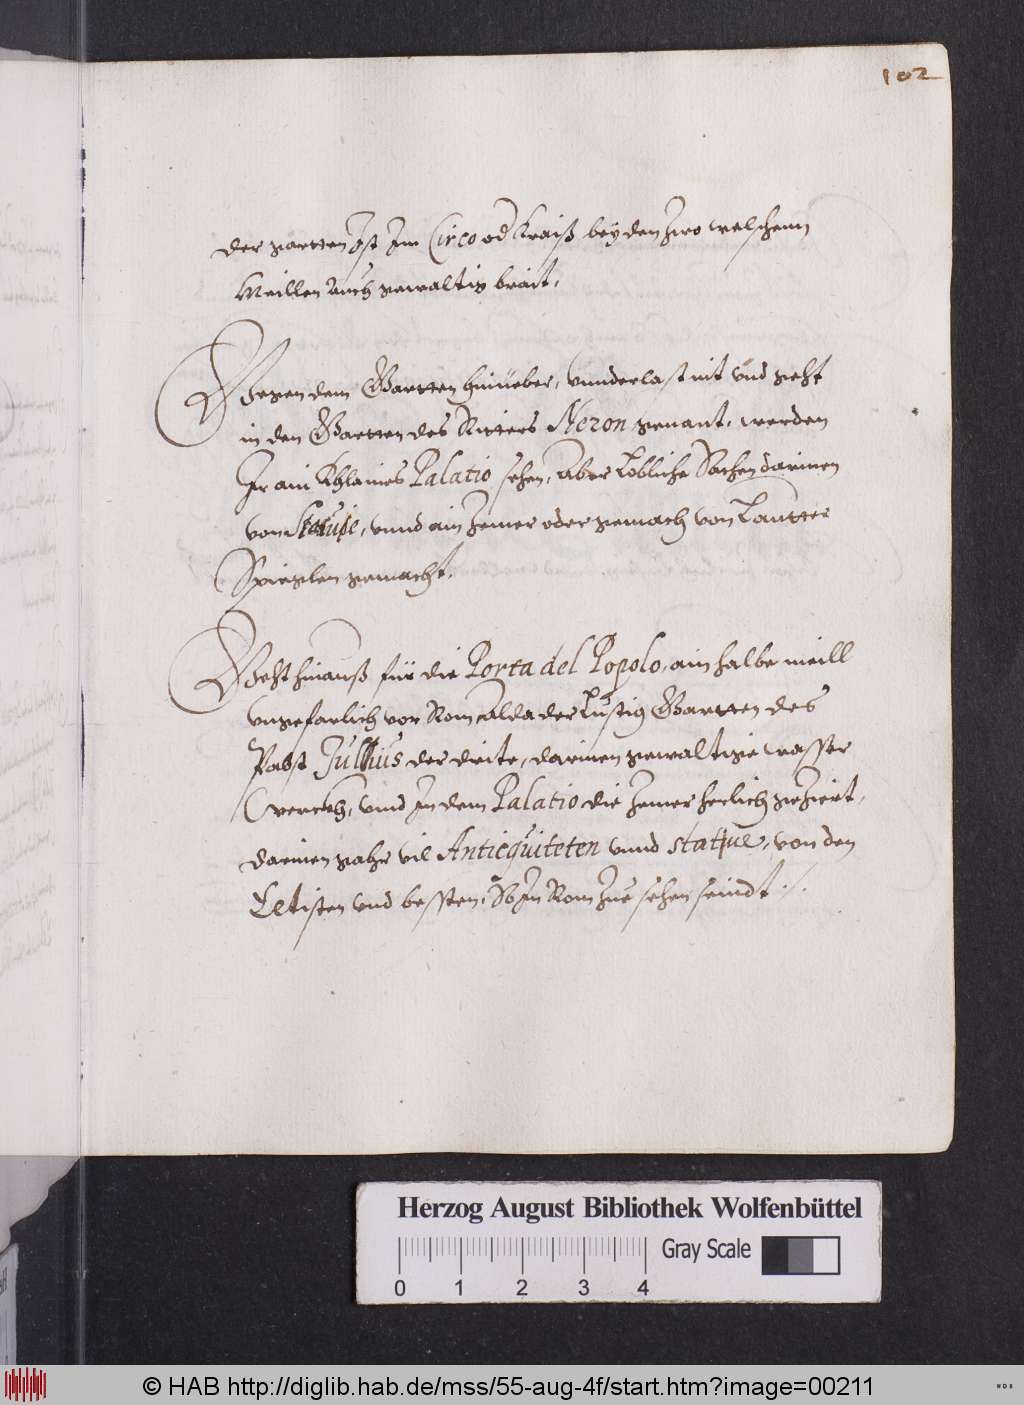 102
der garten Ist Im Circo od Kraiß bey den Zwo welschenn
Meillen Auch gewaltig brait.
Gegen dem Gartten hinüeber, vnnderlast nit vnd geht
in den Gartten des Ritters Neron genant, werden
Ir ain Khlaines Palatio sehen, Aber Lobliche Sachen darinen
von Statuie, vnnd ain Zimer oder gemach von Lautter
Spieglen gemacht.
Geht hinauß für die Porta del Popolo, ain halbe meill
vngefarlich vor Rom, alda der Lustig Gartten des
Pabst Jullius der dritte, darinen gewaltige wasser
werckh, vnnd In dem Palatio die Zimer herlich geziert,
darinen gahr vil Anticquiteten vnnd statuie, von den
Eeltisten vnd bessten, So In Rom Zue sehen seindt ./.
Herzog August Bibliothek Wolfenbüttel
Gray Scale
0 1 2 3 4
© HAB http://diglib.hab.de/mss/55-aug-4f/start.htm?image=00211